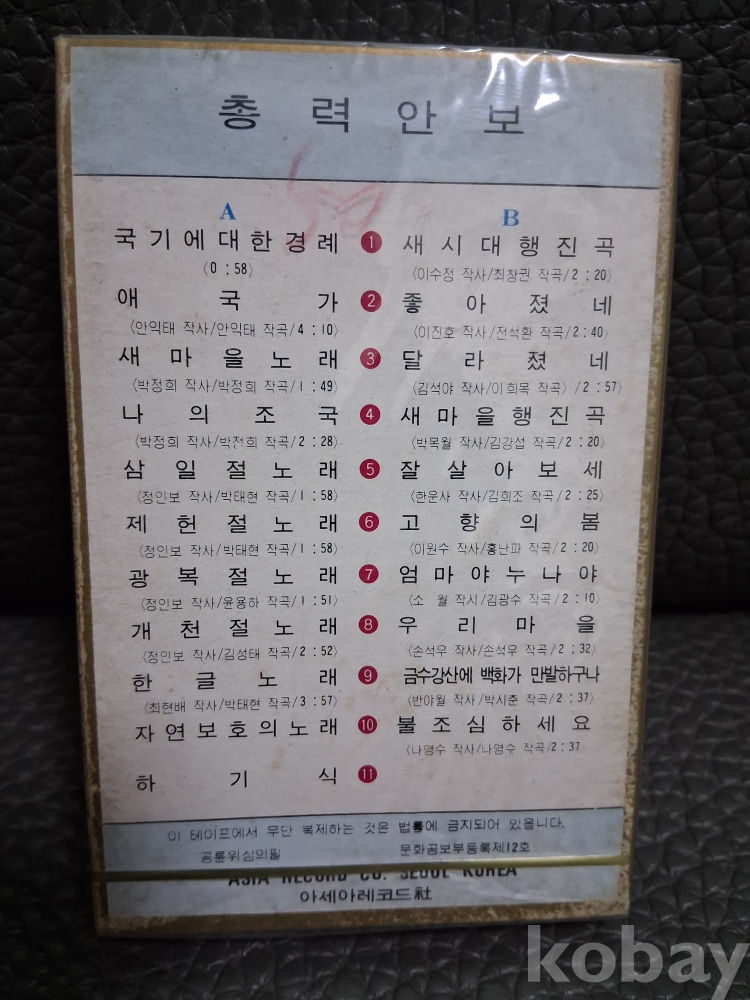 총력안보
A
B
국기에대한경례 1 새시대행진곡
〈0 : 58〉 〈이수정 작사/최창권 작곡/2 : 20〉
애국가 2 좋아졌네
〈안익태 작사/안익태 작곡/4 : 10〉 〈이진호 작사/전석환 작곡/2 : 40〉
새마을노래 3 달라졌네
〈박정희 작사/박정희 작곡/1 : 49〉 〈김석야 작사/이희목 작곡〉/2 : 57〉
나의조국 4 새마을행진곡
〈박정희 작사/박정희 작곡/2 : 28〉 〈박목월 작사/김강섭 작곡/2 : 20〉
삼일절노래 5 잘살아보세
〈정인보 작사/박태현 작곡/1 : 58〉 〈한운사 작사/김희조 작곡/2 : 25〉
제헌절노래 6 고향의봄
〈정인보 작사/박태현 작곡/1 : 58〉 〈이원수 작사/홍난파 작곡/2 : 20〉
광복절노래 7 엄마야누나야
〈정인보 작사/윤용하 작곡/1 : 51〉 〈소 월 작시/김광수 작곡/2 : 10〉
개천절노래 8 우리마을
〈정인보 작사/김성태 작곡/2 : 52〉 〈손석우 작사/손석우 작곡/2 : 32〉
한글노래 9 금수강산에 백화가 만발하구나
〈최현배 작사/박태현 작곡/3 : 57〉 〈반야월 작사/박시춘 작곡/2 : 37〉
자연보호의노래 10 불조심하세요
〈나영수 작사/나영수 작곡/2 : 37
하기식 11
이 테이프에서 무단 복제하는 것은 법률에 금지되어 있읍니다.
공륜위심의필 문화공보부등록제12호
ASIA RECORD CO. SEOUL KOREA
아세아레코드社
kobay